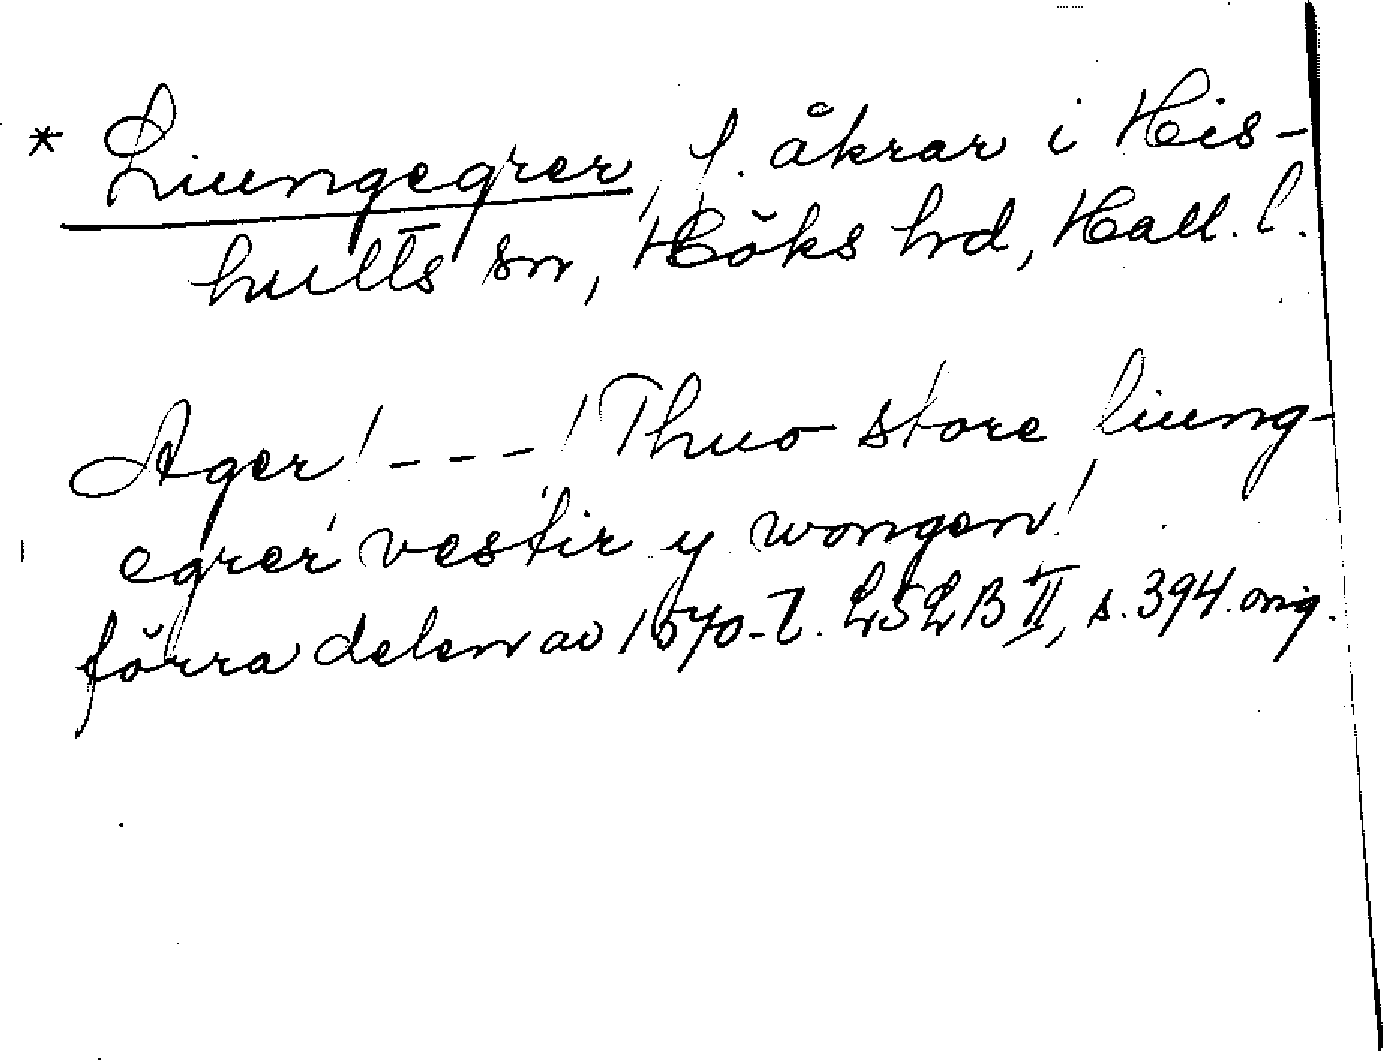 * Liungegrer, f. åkrar i His-
hults sn, Höks hd, Hall. l.
Ager! --- ! Thuo store liung-
egrer vestir y wongen!
förra delen av 1570-t. LSLB II, s. 394. orig.